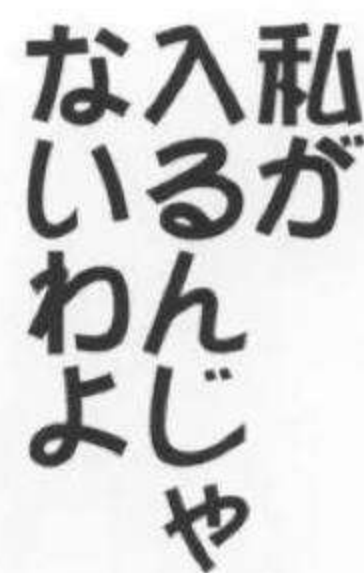 私が
入るんじゃ
ないわよ